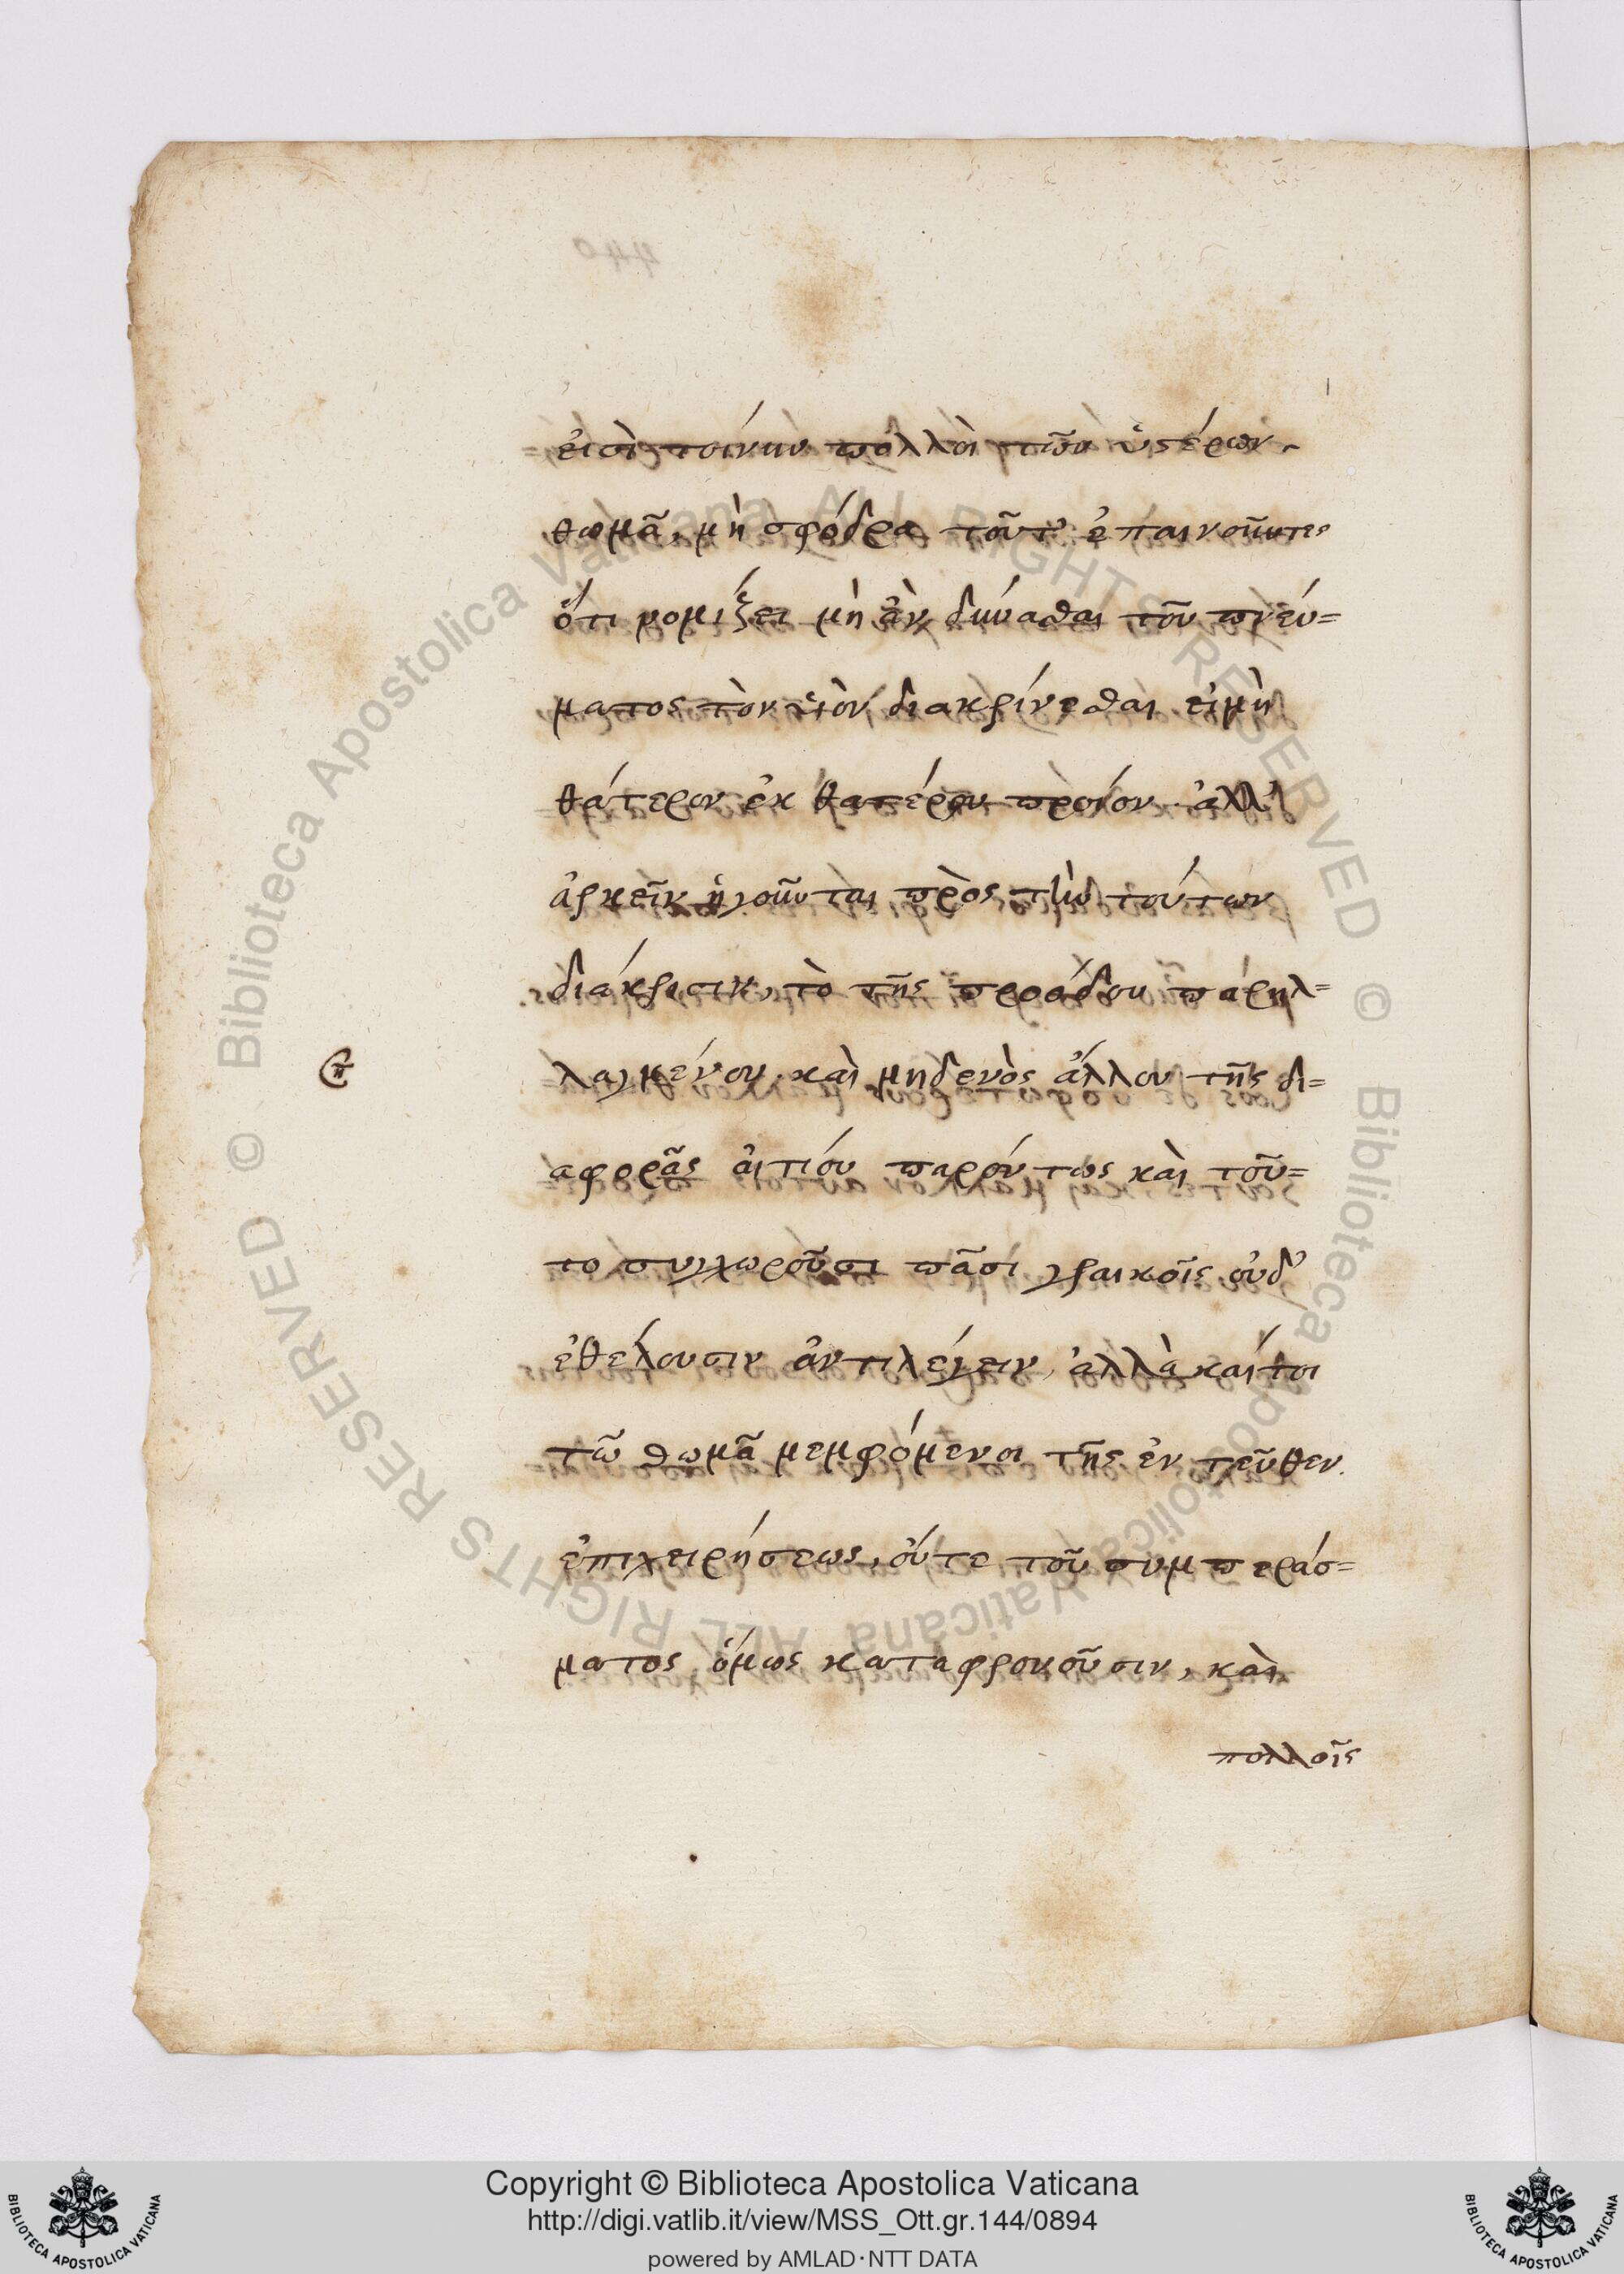 εἰσὶ τοίνυν πολλοὶ τῶν ὑστέρων
θωμᾶ, μὴ σφόδρα τοῦτ' ἐπαινοῦντες
ὅτι νομίζει μὴ ἂν δύνασθαι τοῦ πνεύ=
ματος τὸν υἱὸν διακρίνεσθαι εἰμὴ
θάτερον ἐκ θατέρου προϊόν. ἀλλ'
ἀρκεῖν ἡγοῦνται πρὸς τὴν τούτων
διάκρισιν, τὸ τῆς προόδου παρηλ=
λαγμένον. καὶ μηδενὸς ἄλλου τῆς δι=
αφορᾶς αἰτίου παρόντως καὶ τοῦ=
το συγχωροῦσι πᾶσί γραικοῖς οὐδ'
ἐθέλουσιν ἀντιλέγειν, ἀλλὰ καίτοι
τῶ θωμᾶ μεμφόμενοι τῆς ἐν τεῦθεν
ἐπιχειρήσεως, οὔτε τοῦ συμπεράσ=
ματος ὅμως καταφρονοῦσιν, καὶ
πολλοῖς
Copyright © Biblioteca Apostolica Vaticana
http://digi.vatlib.it/view/MSS_Ott.gr.144/0894
powered by AMLAD·NTT DATA
BIBLIOTECA APOSTOLICA VATICANA
BIBLIOTECA APOSTOLICA VATICANA
© Biblioteca Apostolica Vaticana ALL RIGHTS RESERVED
© Biblioteca Apostolica Vaticana ALL RIGHTS RESERVED